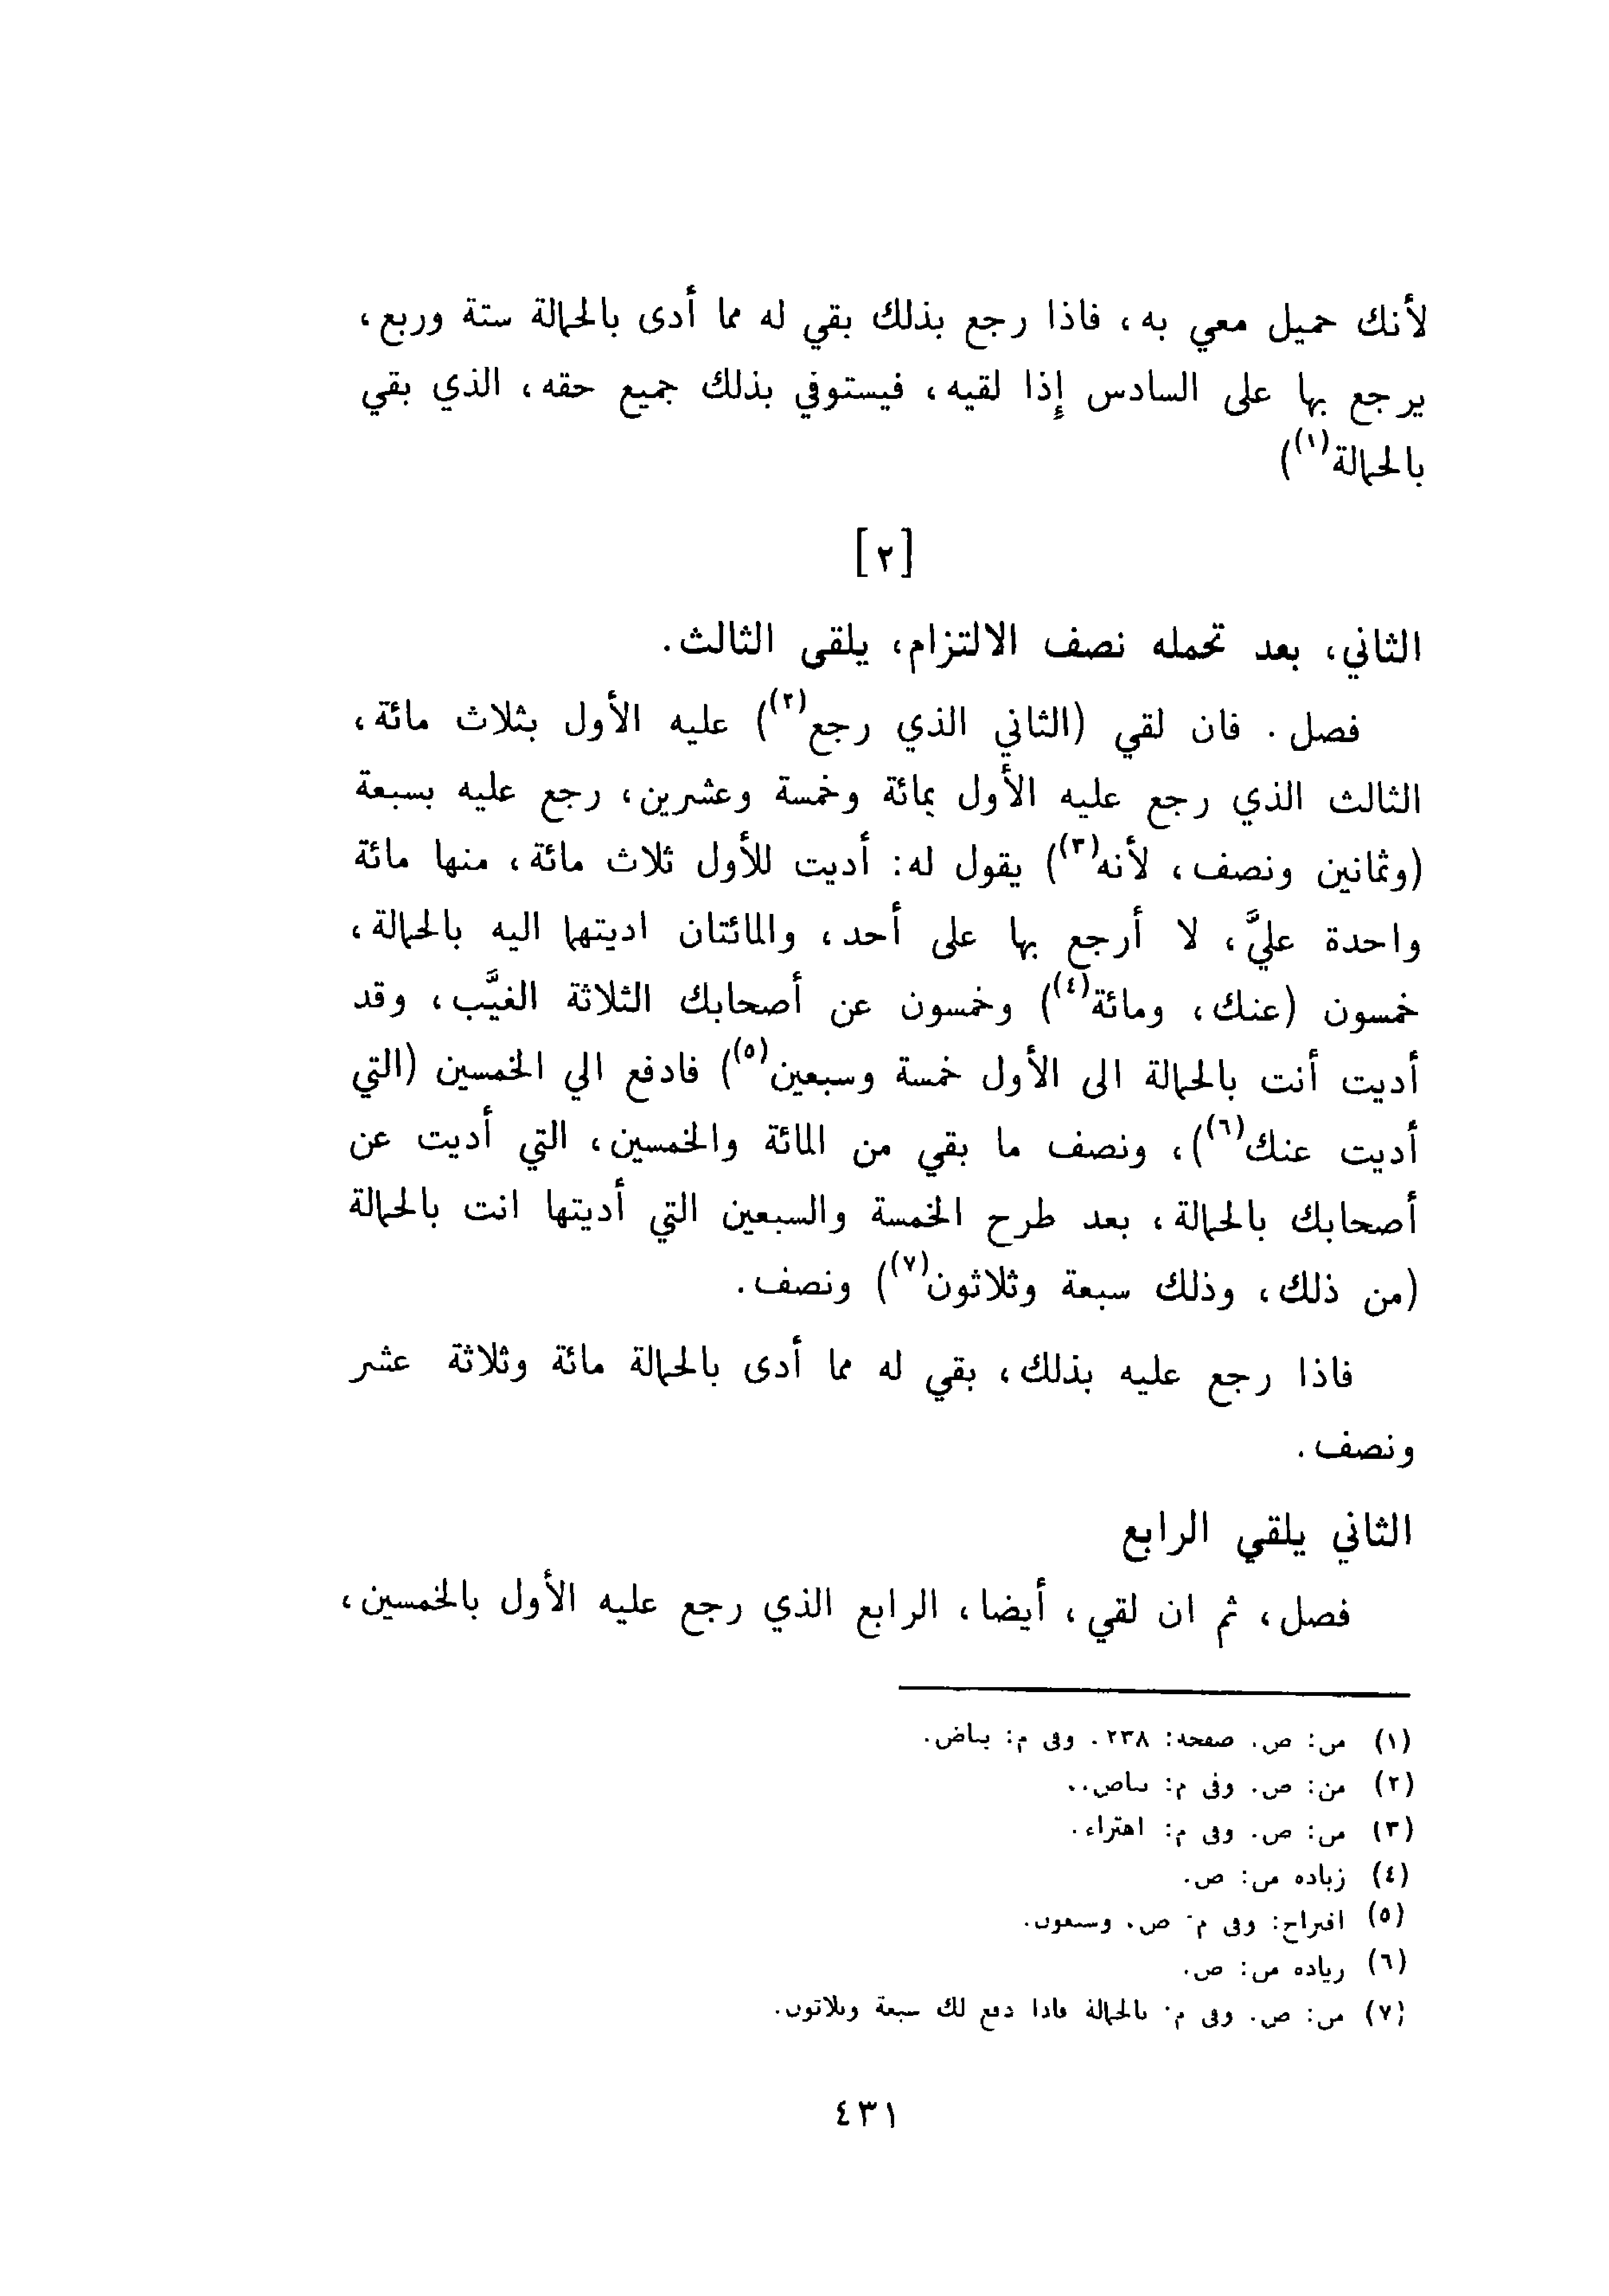 لأنك حميل معي به، فاذا رجع بذلك بقي له مما أدى بالحمالة ستة وربع،
يرجع بها على السادس إذا لقيه، فيستوفي بذلك جميع حقه، الذي بقي
بالحمالة(١))
[٢]
الثاني، بعد تحمله نصف الالتزام، يلقى الثالث.
فصل. فان لقي (الثاني الذي رجع(٢)) عليه الأول بثلاث مائة،
الثالث الذي رجع عليه الأول بمائة وخمسة وعشرين، رجع عليه بسبعة
(وثمانين ونصف، لأنه(٣)) يقول له: أديت للأول ثلاث مائة، منها مائة
واحدة عليَّ، لا أرجع بها على أحد، والمائتان اديتهما اليه بالحمالة،
خمسون (عنك، ومائة(٤)) وخمسون عن أصحابك الثلاثة الغيَّب، وقد
أديت أنت بالحمالة الى الأول خمسة وسبعين(٥)) فادفع الي الخمسين (التي
أديت عنك(٦))، ونصف ما بقي من المائة والخمسين، التي أديت عن
أصحابك بالحمالة، بعد طرح الخمسة والسبعين التي أديتها انت بالحمالة
(من ذلك، وذلك سبعة وثلاثون(٧)) ونصف.
فاذا رجع عليه بذلك، بقي له مما أدى بالحمالة مائة وثلاثة عشر
ونصف.
الثاني يلقي الرابع
فصل، ثم ان لقي، أيضا، الرابع الذي رجع عليه الأول بالخمسين،
(١) من: ص. صفحة: ٢٣٨. وفي م: بياض.
(٢) من: ص. وفي م: بياض..
(٣) من: ص. وفي م: اهتراء.
(٤) زيادة من: ص.
(٥) اقتراح: وفي م- ص. وسبعون.
(٦) زيادة من: ص.
(٧) من: ص. وفي م: بالحمالة فاذا دفع لك سبعة وثلاثون.
٤٣١